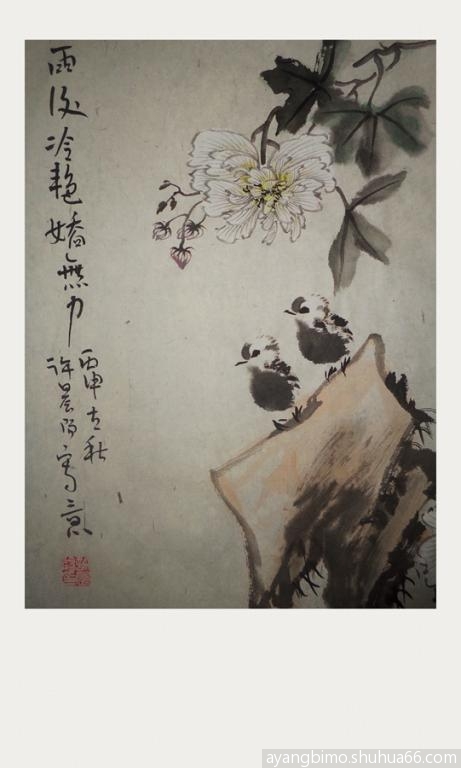 雨後冷艳嬌無力
丙申立秋
许晨阳寫意
ayangbimo.shuhua66.com